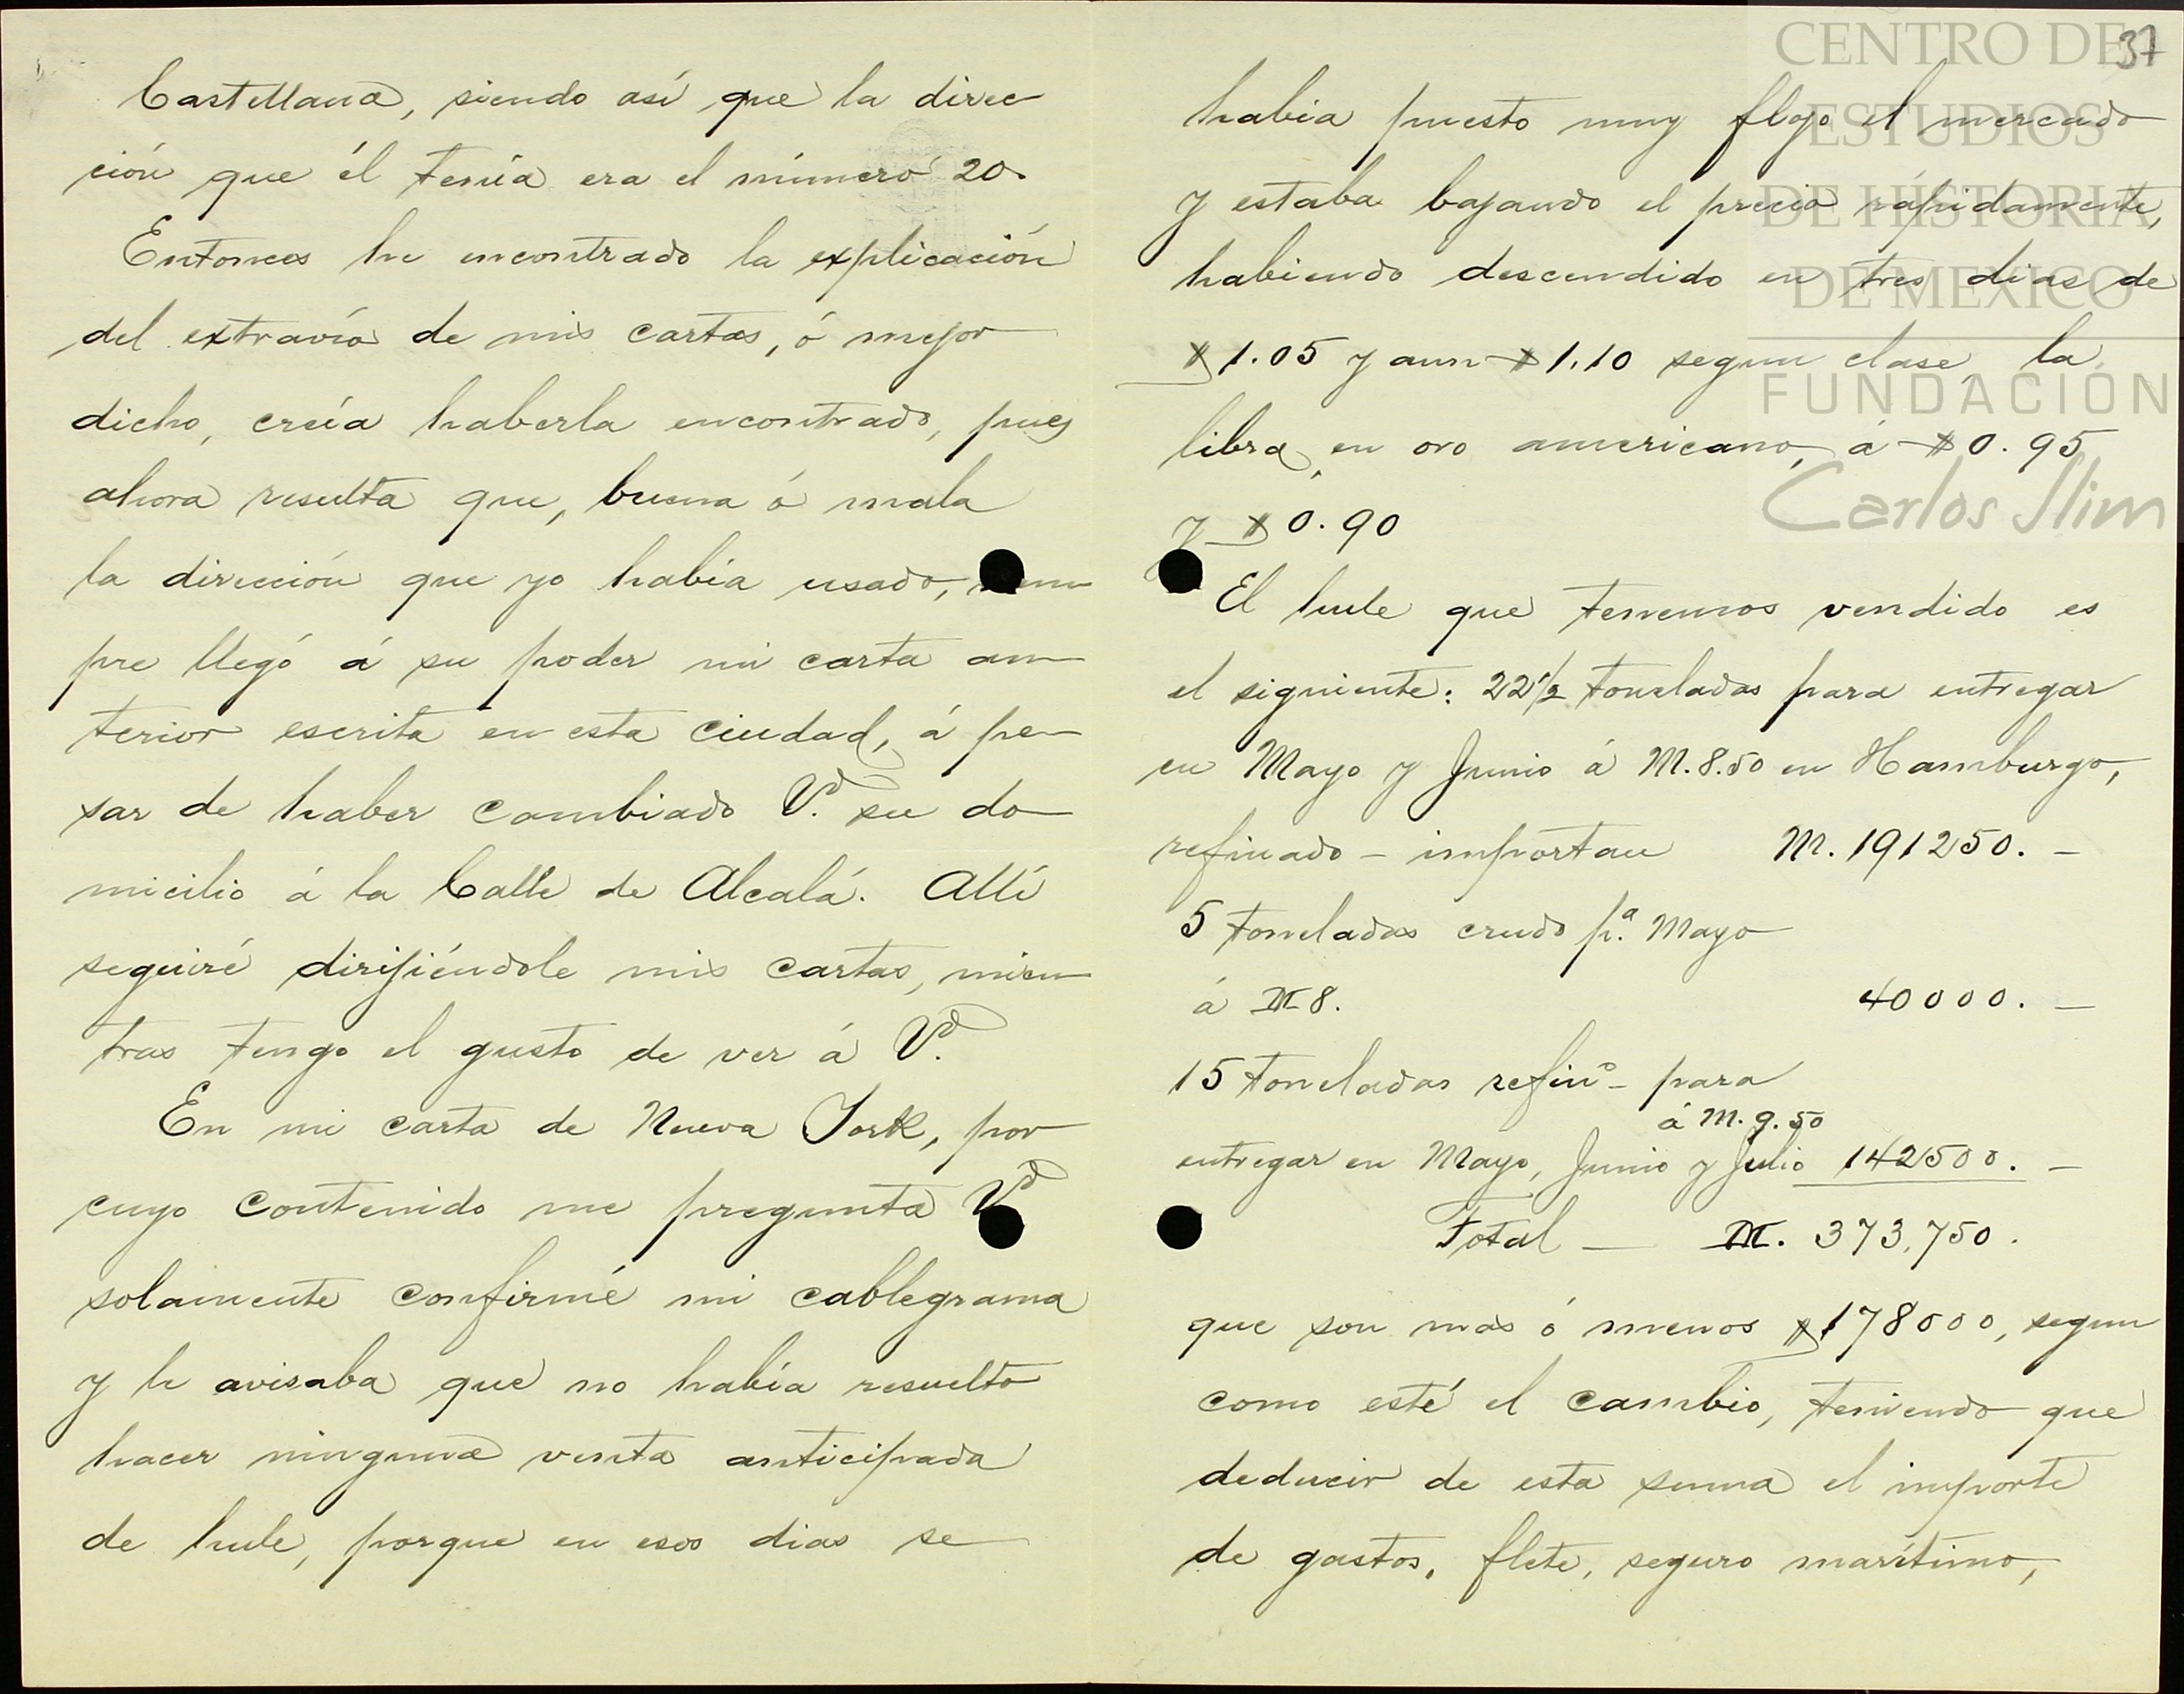 Castellana, siendo así que la direc
ción que él tenía era el número 20.
Entonces he encontrado la explicación
del extravío de mis cartas, ó mejor
dicho, creía haberla encontrado, pues
ahora resulta que, buena ó mala
la dirección que yo había usado, siem
pre llegó á su poder mi carta an
terior escrita en esta ciudad, á pe
sar de haber cambiado Vd. su do
micilio á la Calle de Alcalá. Allí
seguiré dirijiéndole mis cartas, mien
tras tengo el gusto de ver á Vd.
En mi carta de Nueva York, por
cuyo contenido me pregunta Vd
solamente confirmé mi cablegrama
y le avisaba que no había resuelto
hacer ninguna venta anticipada
de hule, porque en esos dias se
37
habia puesto muy flojo el mercado
y estaba bajando el precio rápidamente,
habiendo descendido en tres dias de
$1.05 y aun $1.10 segun clase, la
libra, en oro americano, á $0.95
y $0.90
El hule que tenemos vendido es
el siguiente: 22½ toneladas para entregar
en Mayo y Junio á M.8.50 en Hamburgo,
refinado – importan M. 191250. –
5 toneladas crudo p.ª Mayo
á M 8. 40000. –
15 toneladas refinº – para
á M. 9.50
entregar en Mayo, Junio y Julio 142500. –
Total — M. 373,750.
que son mas ó menos $178000, segun
como esté el cambio, teniendo que
deducir de esta suma el importe
de gastos, flete, seguro marítimo,
CENTRO DE
ESTUDIOS
DE HISTORIA
DE MEXICO
FUNDACIÓN
Carlos Slim